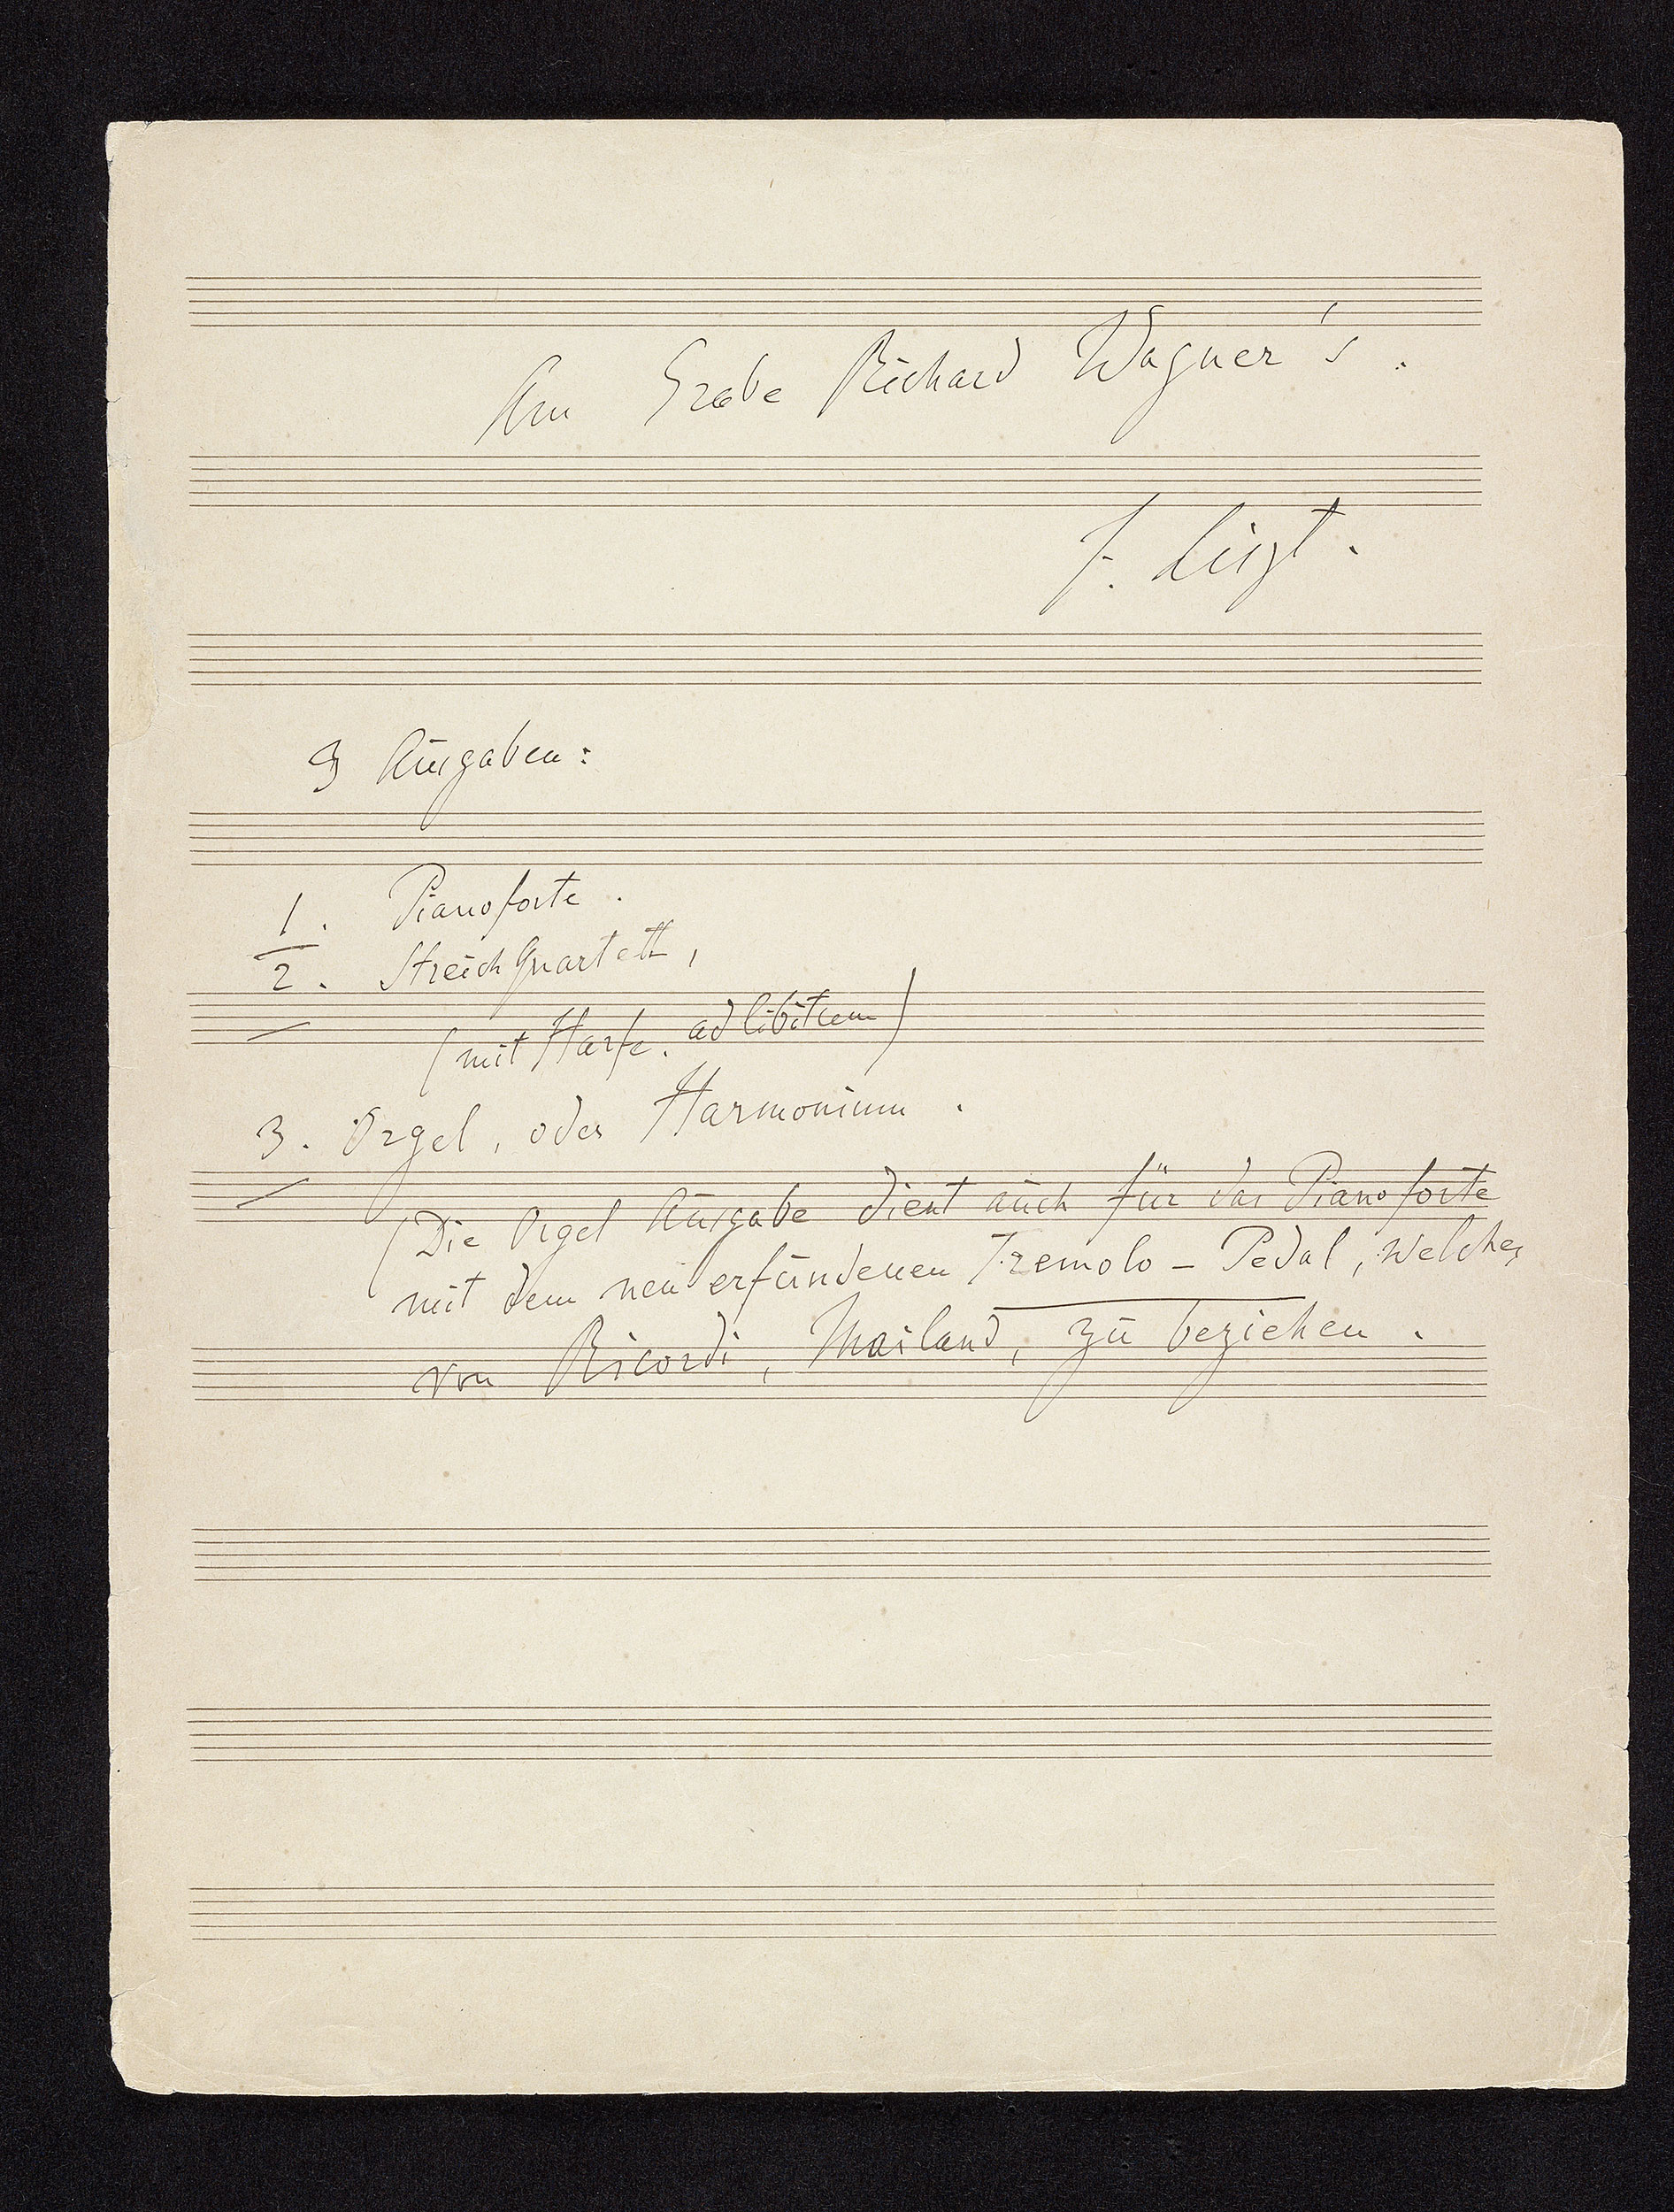 Am Grabe Richard Wagner's.
F. Liszt.
3 Ausgaben:
1. Pianoforte.
2. Streichquartett,
(mit Harfe. ad libitum)
3. Orgel, oder Harmonium.
(Die Orgel Ausgabe dient auch für das Pianoforte
mit dem neu erfundenen Tremolo – Pedal, welches
von Ricordi, Mailand, zu beziehen.